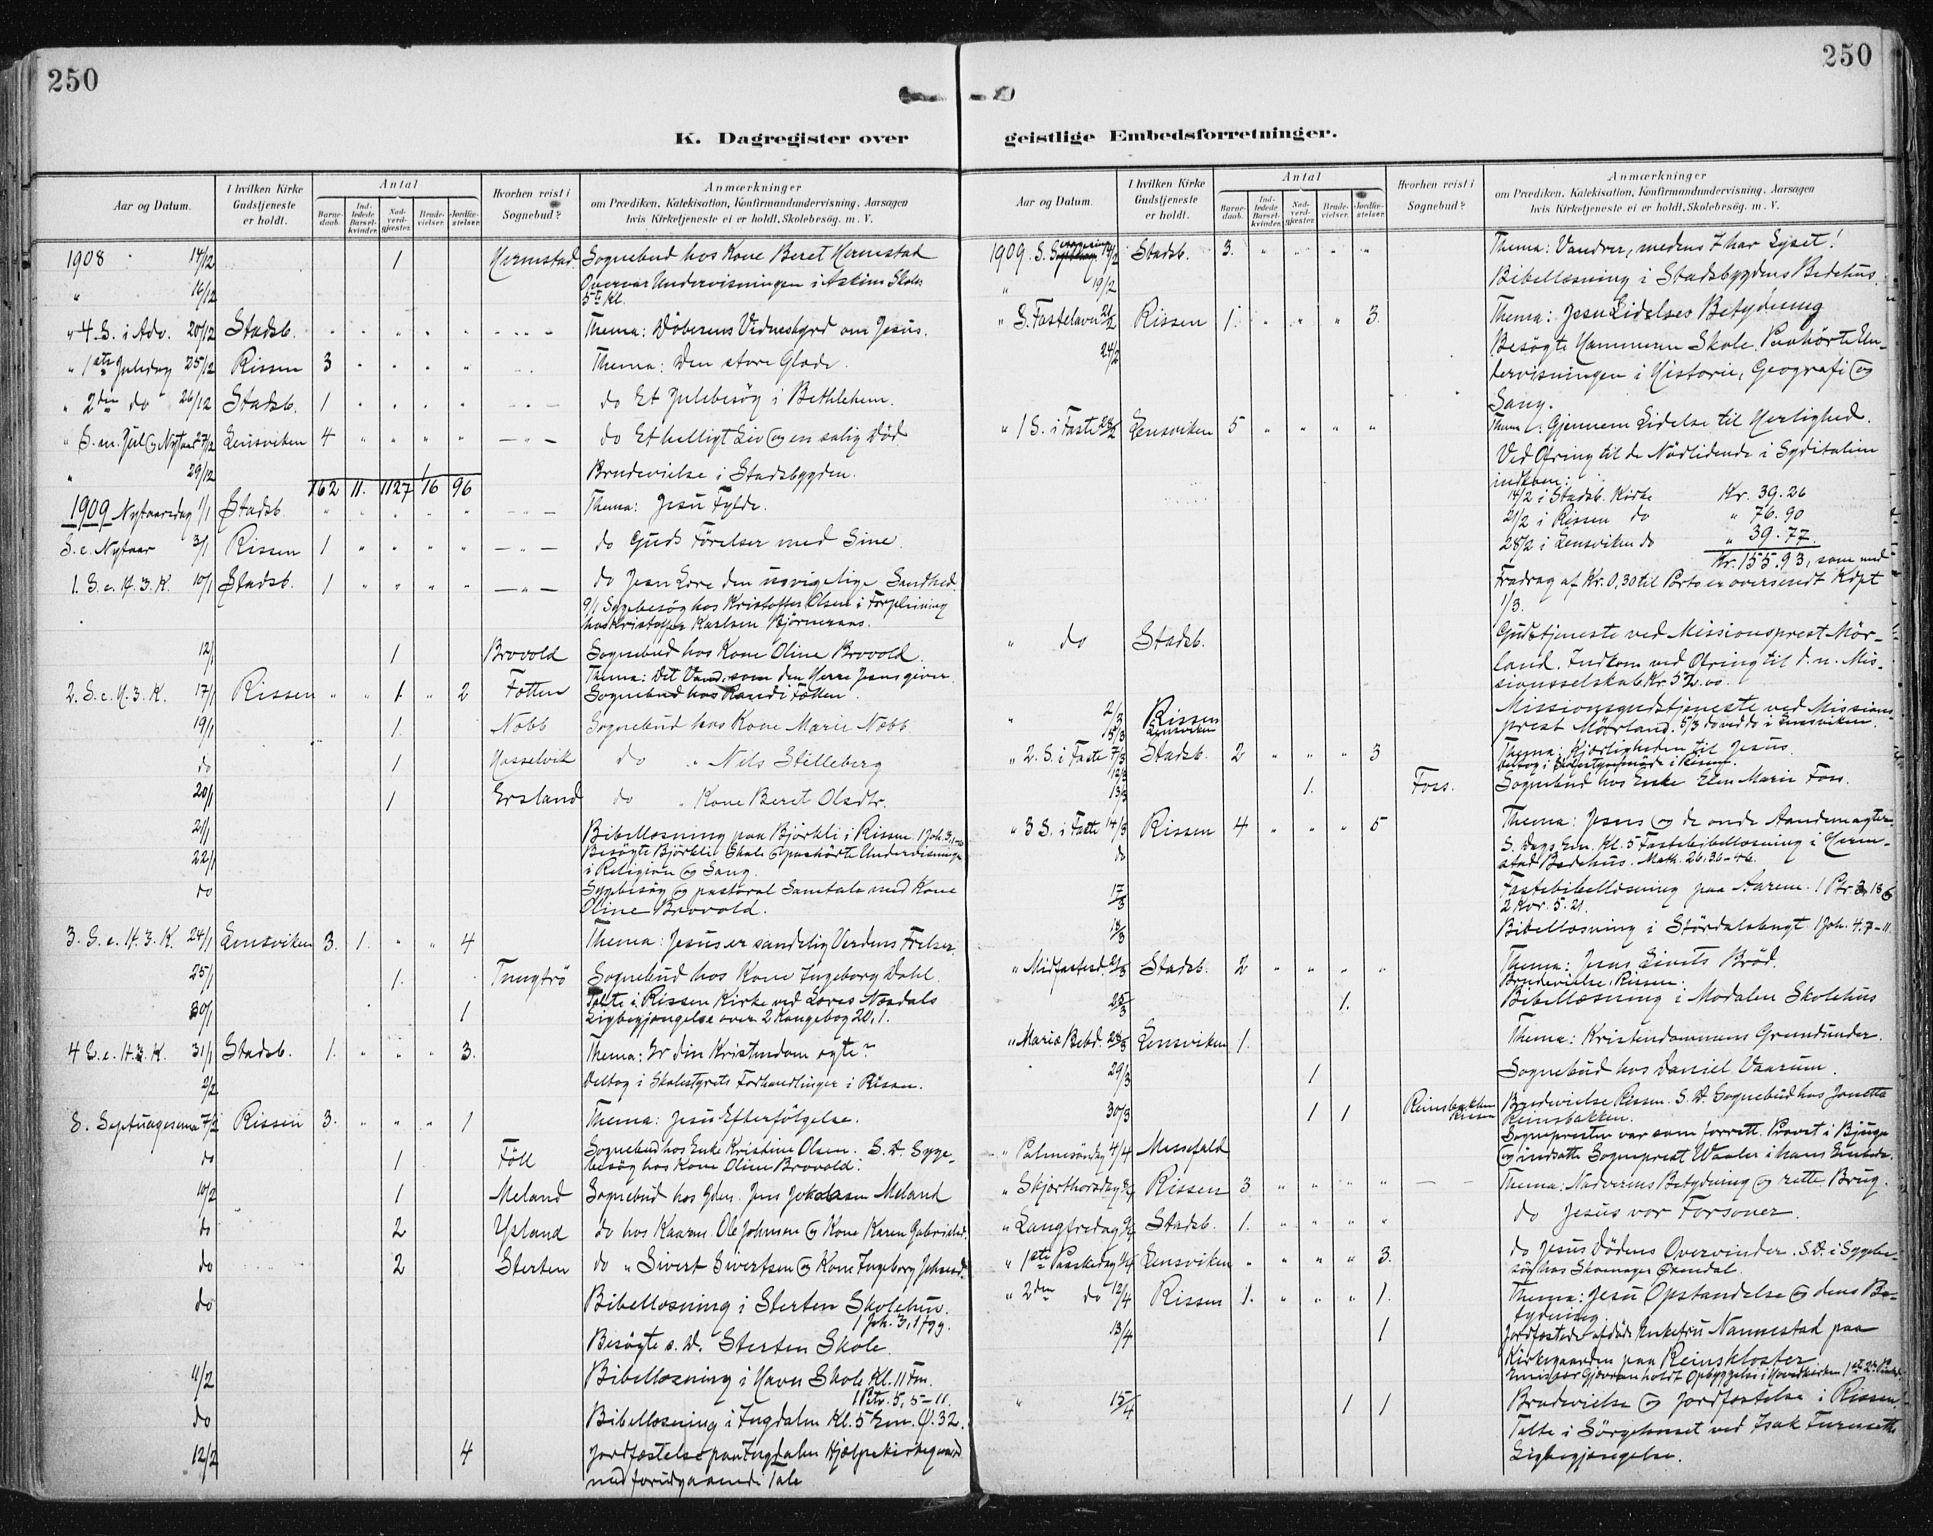 250
K. Dagregister over
Aar og Datum.
I hvilken Kirke Gudstjeneste er holdt.
Antal
Barne-daab.
Ind-ledede Barsel-kvinder.
Nad-verd-gjester.
Brude-vielser.
Jordfæ-stelser.
Hvorhen reist i Sognebud?
Anmærkninger
om Prædiken, Katekisation, Konfirmandundervisning, Aarsagen
hvis Kirketjeneste ei er holdt, Skolebesøg. m. V.
1908 14/12 1 Hermstad Sognebud hos Kone Beret Hermstad
" 16/12 Overvar Undervisningen i Askim Skoles
5te Kl.
" 4. S. i Adv. 20/12 Stadsb. " " " " " Thema: Döberens Vidnesbyrd om Jesus.
" 1ste Juledag 25/12 Rissen 3 " " " " Thema: Den store Glæde.
" 2den do 26/12 Stadsb. 1 " " " " do Et Julebesög i Bethlehem.
" S. m. Jul og Nytaar 27/12 Lensviken 4 " " " " do Et helligt Liv og en salig Död
" 29/12 1 Brudevielse i Stadsbygden.
162 11. 1127 16 96
1909 Nytaarsdag 1/1 Stadsb. " " " " " Thema: Jesu Fylde.
S. e. Nytaar 3/1 Rissen 1 " " " " do Guds Förelser med Sine.
1. S. e. H. 3. K. 10/1 Stadsb. 1 " " " " do Jesu Lære den usvigelige Sandhed.
9/1 Sygebesög hos Kristoffer Olsen i Forpleining
hos Kristoffer Karlsen Björneraas.
12/1 1 Brovold Sognebud hos Kone Oline Brovold.
Thema: Det Vand, som den Herre Jesus giver.
2. S. e. H. 3. K. 17/1 Rissen " " 1 " 2 Fætten Sognebud hos Randi Fætten.
19/1 1 Næbb Sognebud hos Kone Marie Næbb
do 1 Hasselvik do " Nils Stilleberg
20/1 1 Ersland do " Kone Beret Olsdtr.
21/1 Bibellæsning paa Björkli i Rissen. 1 Joh. 3,
22/1 Besögte Björkli Skole og paahörte Undervisningen
i Religion og Sang.
do Sygebesög og pastoral Samtale med Kone
Oline Brovold.
3. S. e. H. 3. K. 24/1 Lensviken 3. 1. " " 4 Thema: Jesus er sandelig Verdens Frelser.
25/1 1. Tungtrö Sognebud hos Kone Ingeborg Dahl.
30/1 1 Talte i Rissen Kirke ved Lores Næsdals
Ligbegjængelse over 2 Kongebog 20, 1.
4 S. e. H. 3. K. 31/1 Stadsb. 1. " " " 3. Thema: Er din Kristendom ægte?
2/2 Deltog i Skolestyrets Forhandlinger i Rissen.
S. Septuagesima 7/2 Rissen 3. " " " 1 Thema: Jesu Efterfölgelse.
do 1 Föll Sognebud hos Enke Kristine Olsen. S. D. Syge-
besög hos Kone Oline Brovold.
10/2 1 Meland Sognebud hos Gdm. Jens Jakobsen Meland
do 2 Ysland do hos Kaarm. Ole Johnsen og Kone Karen Gabrielsd.
do 2 Sterten do " Sivert Sivertsen og Kone Ingeborg Johnsd.
do Bibellæsning i Sterten Skolehus.
1 Joh. 3, 1 fgg.
Besögte s. D. Sterten Skole.
11/2 Bibellæsning i Havn Skole Kl. 11 Fm.
1 Petr. 5, 5-11.
do Bibellæsning i Ingdalen Kl. 5 Em. 32.
12/2 4 Jordfæstelse paa Ingdalen Hjælpekirkegaard
med forudgaaende Tale
250
geistlige Embedsforretninger.
Aar og Datum.
I hvilken Kirke Gudstjeneste er holdt.
Antal
Barne-daab.
Ind-ledede Barsel-kvinder.
Nad-verd-gjester.
Brude-vielser.
Jordfæ-stelser.
Hvorhen reist i Sognebud?
Anmærkninger
om Prædiken, Katekisation, Konfirmandundervisning, Aarsagen
hvis Kirketjeneste ei er holdt, Skolebesøg. m. V.
1909. S. 14/2 Stadsb. 3. " " " " Thema: Vandrer, medens I har Lyset!
" 19/2 Bibellæsning i Stadsbygdens Bedehus.
" S. Fastelavn 21/2 Rissen 1. " " " 3. Thema: Jesu Lidelses Betydning
24/2 Besögte Hammeren Skole. Paahörte Un-
dervisningen i Historie, Geografi og
Sang.
" 1 S. i Faste 28/2 Lensviken 5 " " " " Thema: Gjennem Lidelse til Herlighed.
Ved Ofring til de Nödlidende i Syditalien
indkom:
14/2 i Stadsb. Kirke Kr. 39.26
21/2 i Rissen do " 76.90
28/2 i Lensviken do " 39.77.
Kr. 155.93, som med
Fradrag af Kr. 0,30 til Porto er oversendt Kdpt
1/3.
" do Stadsb. Gudstjeneste ved Missionsprest Mör-
land. Indkom ved Ofring til d. n. Mis-
sionsselskab Kr. 52.00.
" 2/3 Rissen Missionsgudstjeneste ved Missions-
5/3 Lensviken prest Mörland. 5/3 do ved do i Lensviken.
" 2. S. i Faste 7/3 Stadsb. 2 " " " 3 Thema: Kjærligheden til Jesus.
12/3 Deltog i Skolestyremöde i Rissen.
13/3 1. Foss. Sognebud hos Enke Elen Marie Foss.
" 3 S. i Faste 14/3 Rissen 4 " " " 5 Thema: Jesus og de onde Aandemagter.
do S. Dags Em. Kl. 5 Fastebibellæsning i Herm-
stad Bedehus. Math. 26. 36-46.
17/3 Fastebibellæsning paa Aarem.
2 Kor. 5. 21.
18/3 Bibellæsning i Stördalsbugt. 1 Joh. 4. 7-11.
" Midfastesd. 21/3 Stadsb. 2 " " " " Thema: Jesus Livets Bröd.
Brudevielse, Rissen.
25/3 1. Bibellæsning i Modalen Skolehus
" Mariæ Bebd. 28/3 Lensviken 1. Thema: Kristendommens Grundunder.
29/3 1 Sognebud hos Daniel Vaarum.
30/3 1 1 Reinsbakken Rissen Brudevielse Rissen. S. D. Sognebud hos Jonetta
Reinsbakken.
Sognepresten var som forrett. Provst i Bjugn
" Palmesöndag 4/4 Messefald og indsatte Sogneprest Waaler i hans Embede.
" Skjærthorsdag 8/4 Rissen 3 " " " " Thema: Nadverens Betydning og rette Brug.
" Langfredag 9/4 Stadsb. 1. " " " " do Jesus vor Forsoner.
" 1ste Paaskedag 11/4 Lensviken " " " " 3. do Jesus Dödens Overvinder. S. D. i Sygebe-
sög hos Skomager Örendal.
" 2den do 12/4 Rissen 1. " " " 1. Thema: Jesu Opstandelse og dens Be-
tydning
13/4 1 Jordfæstede afdöde Enkefru Nannestad paa
Kirkegaarden paa Reinskloster
holdt Opbyggelse i Hovedkirken
" 15/4 1 1 Brudevielse og Jordfæstelse i Rissen
Talte i Sörgehuset ved Isak
Ligbegjængelse.